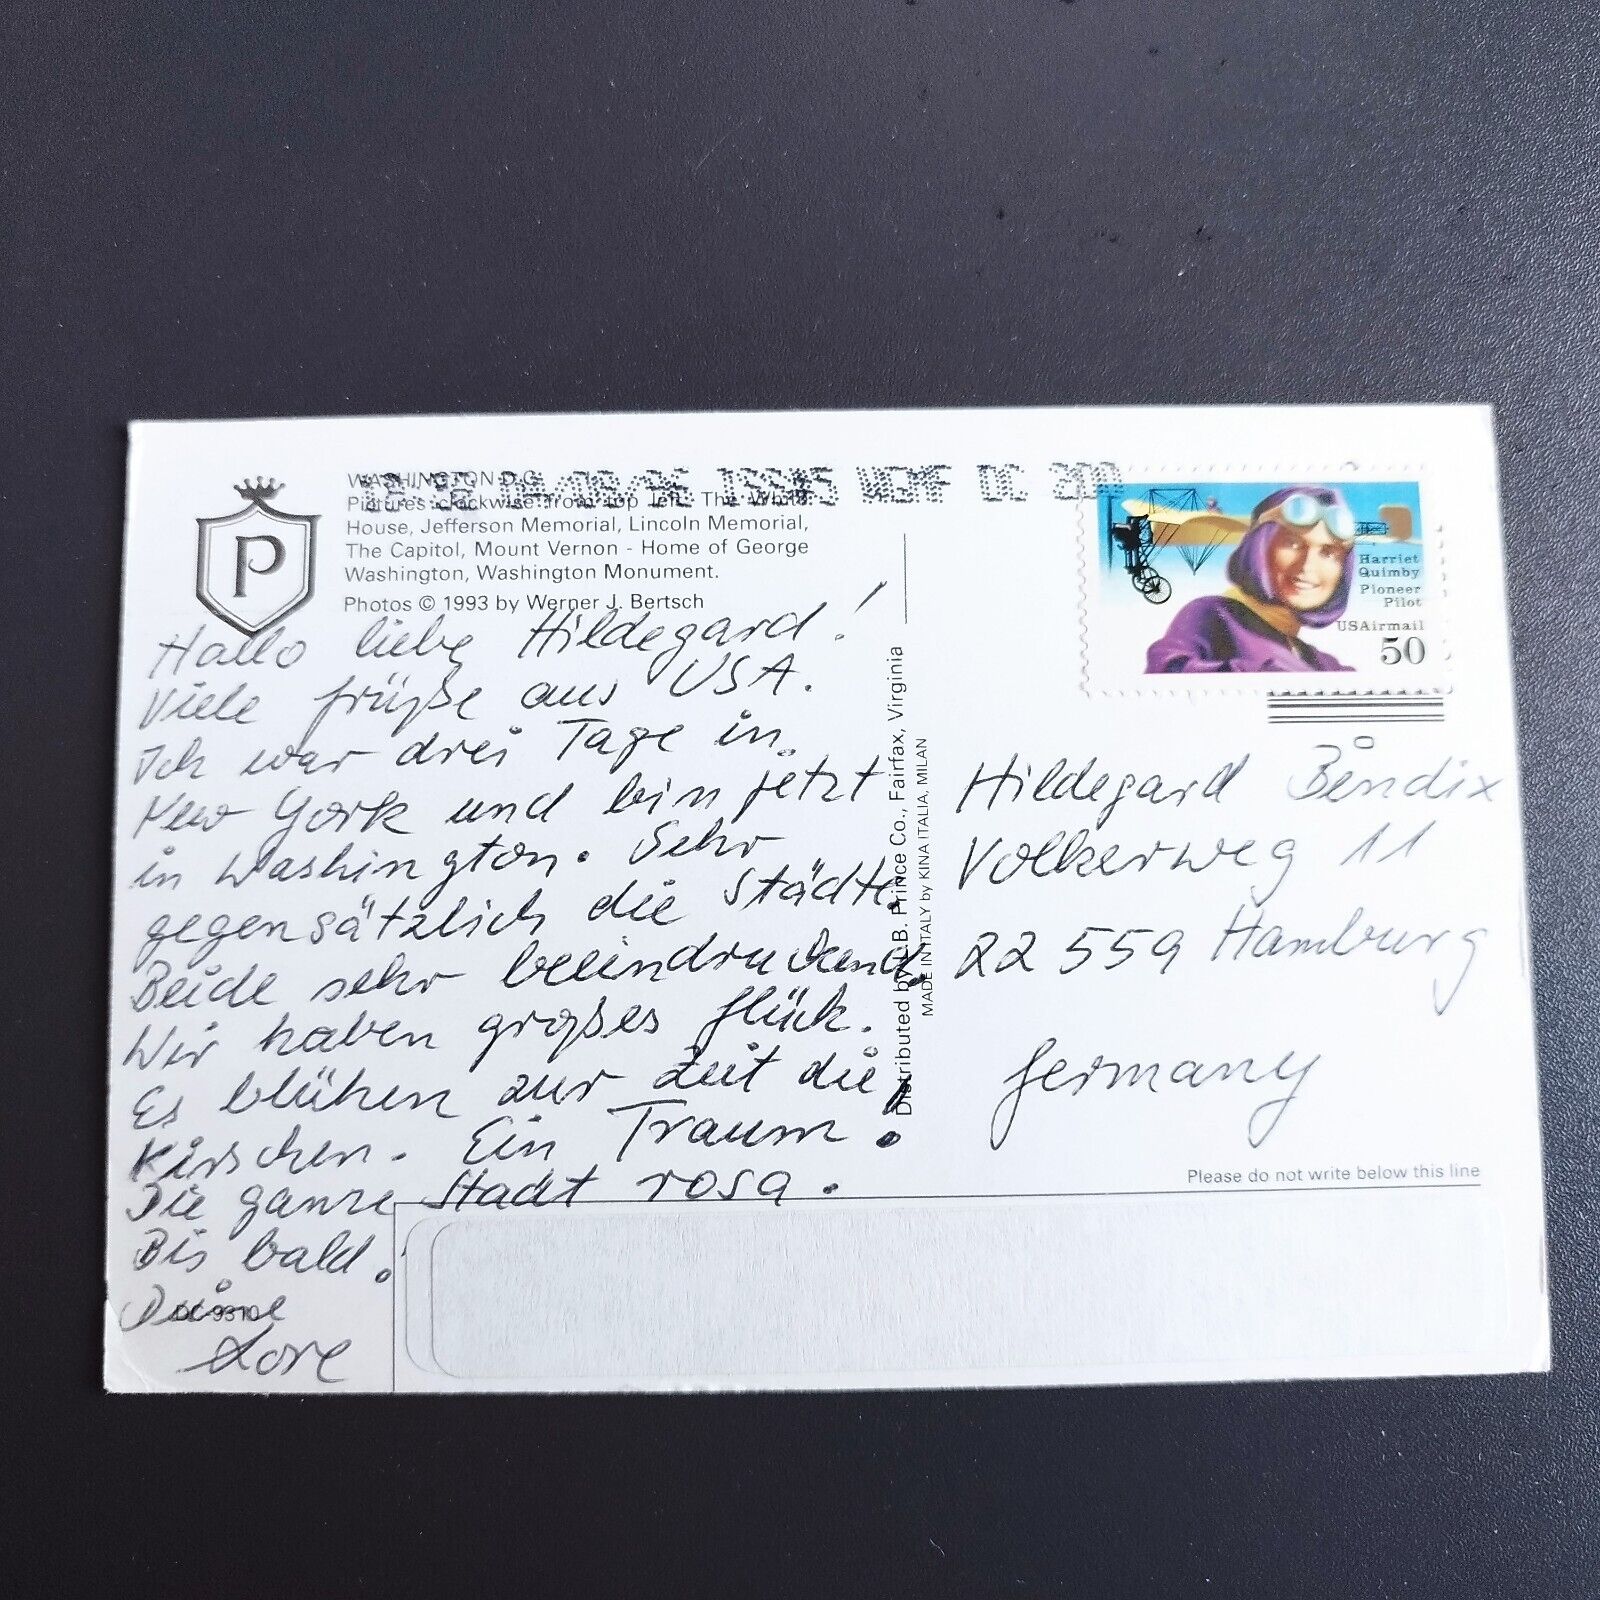 WASHINGTON D.C.
Pictures clockwise from top left: The White
House, Jefferson Memorial, Lincoln Memorial,
The Capitol, Mount Vernon - Home of George
Washington, Washington Monument.
Photos © 1993 by Werner J. Bertsch
P
Hallo liebe Hildegard!
Viele Grüße aus USA.
Ich war drei Tage in
New York und bin jetzt
in Washington. Sehr
gegensätzlich die Städte.
Beide sehr beeindruckend
Wir haben großes Glück.
Es blühen zur Zeit die
Kirschen. Ein Traum.
Die ganze Stadt rosa.
Bis bald.
Deine
Lore
DC-9310
Distributed by L.B. Prince Co., Fairfax, Virginia
MADE IN ITALY by KINA ITALIA, MILAN
DC
Harriet
Quimby
Pioneer
Pilot
USAirmail
50
Hildegard Bendix
Volkerweg 11
22 559 Hamburg
Germany
Please do not write below this line